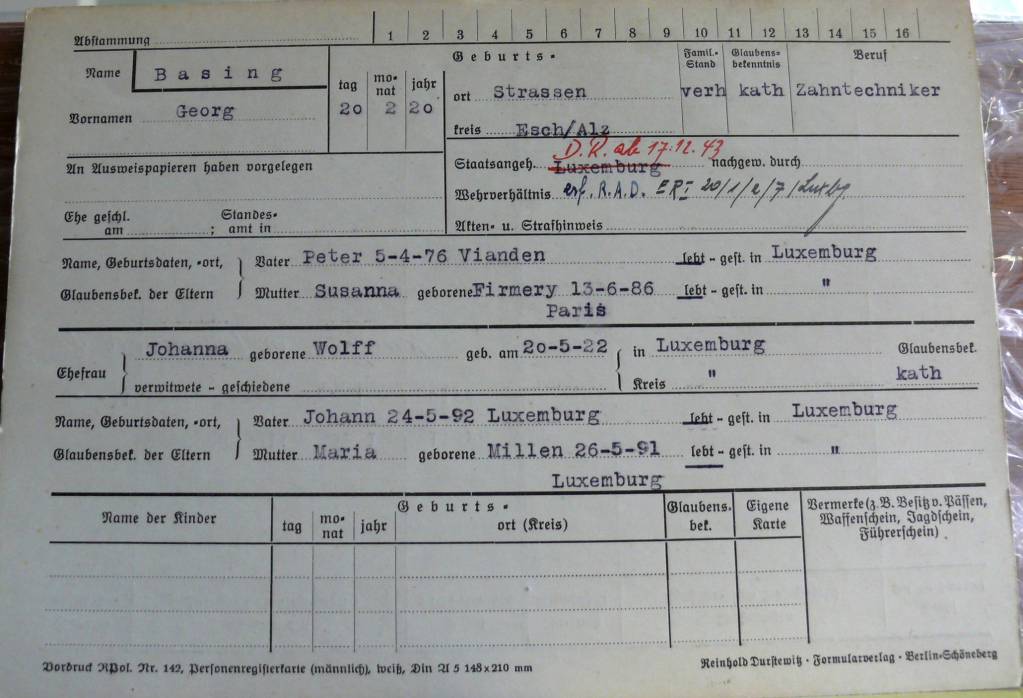 Abstammung 1 2 3 4 5 6 7 8 9 10 11 12 13 14 15 16
Name Basing tag mo-nat jahr Geburts- Famil.-Stand Glaubens-bekenntnis Beruf
Vornamen Georg 20 2 20 ort Strassen verh kath Zahntechniker
kreis Esch/Alz
D.R. ab 17.12.43
An Ausweispapieren haben vorgelegen Staatsangeh. Luxemburg nachgew. durch
Wehrverhältnis erf. R.A.D. ER I 20/1/2/7/Luxbg.
Ehe geschl. Standes-
am ; amt in Akten- u. Strafhinweis
Name, Geburtsdaten, -ort, Vater Peter 5-4-76 Vianden lebt - gest. in Luxemburg
Glaubensbek. der Eltern Mutter Susanna geborene Firmery 13-6-86 lebt - gest. in "
Paris
Johanna geborene Wolff geb. am 20-5-22 in Luxemburg Glaubensbek.
Ehefrau verwitwete - geschiedene Kreis " kath
Name, Geburtsdaten, -ort, Vater Johann 24-5-92 Luxemburg lebt - gest. in Luxemburg
Glaubensbek. der Eltern Mutter Maria geborene Millen 26-5-91 lebt - gest. in "
Luxemburg
Name der Kinder Geburts- Glaubens-bek. Eigene Karte Vermerke (z. B. Besitz v. Pässen,
tag mo-nat jahr ort (Kreis) Waffenschein, Jagdschein,
Führerschein)
Vordruck RPol. Nr. 142, Personenregisterkarte (männlich), weiß, Din A 5 148x210 mm
Reinhold Durstewitz · Formularverlag · Berlin-Schöneberg